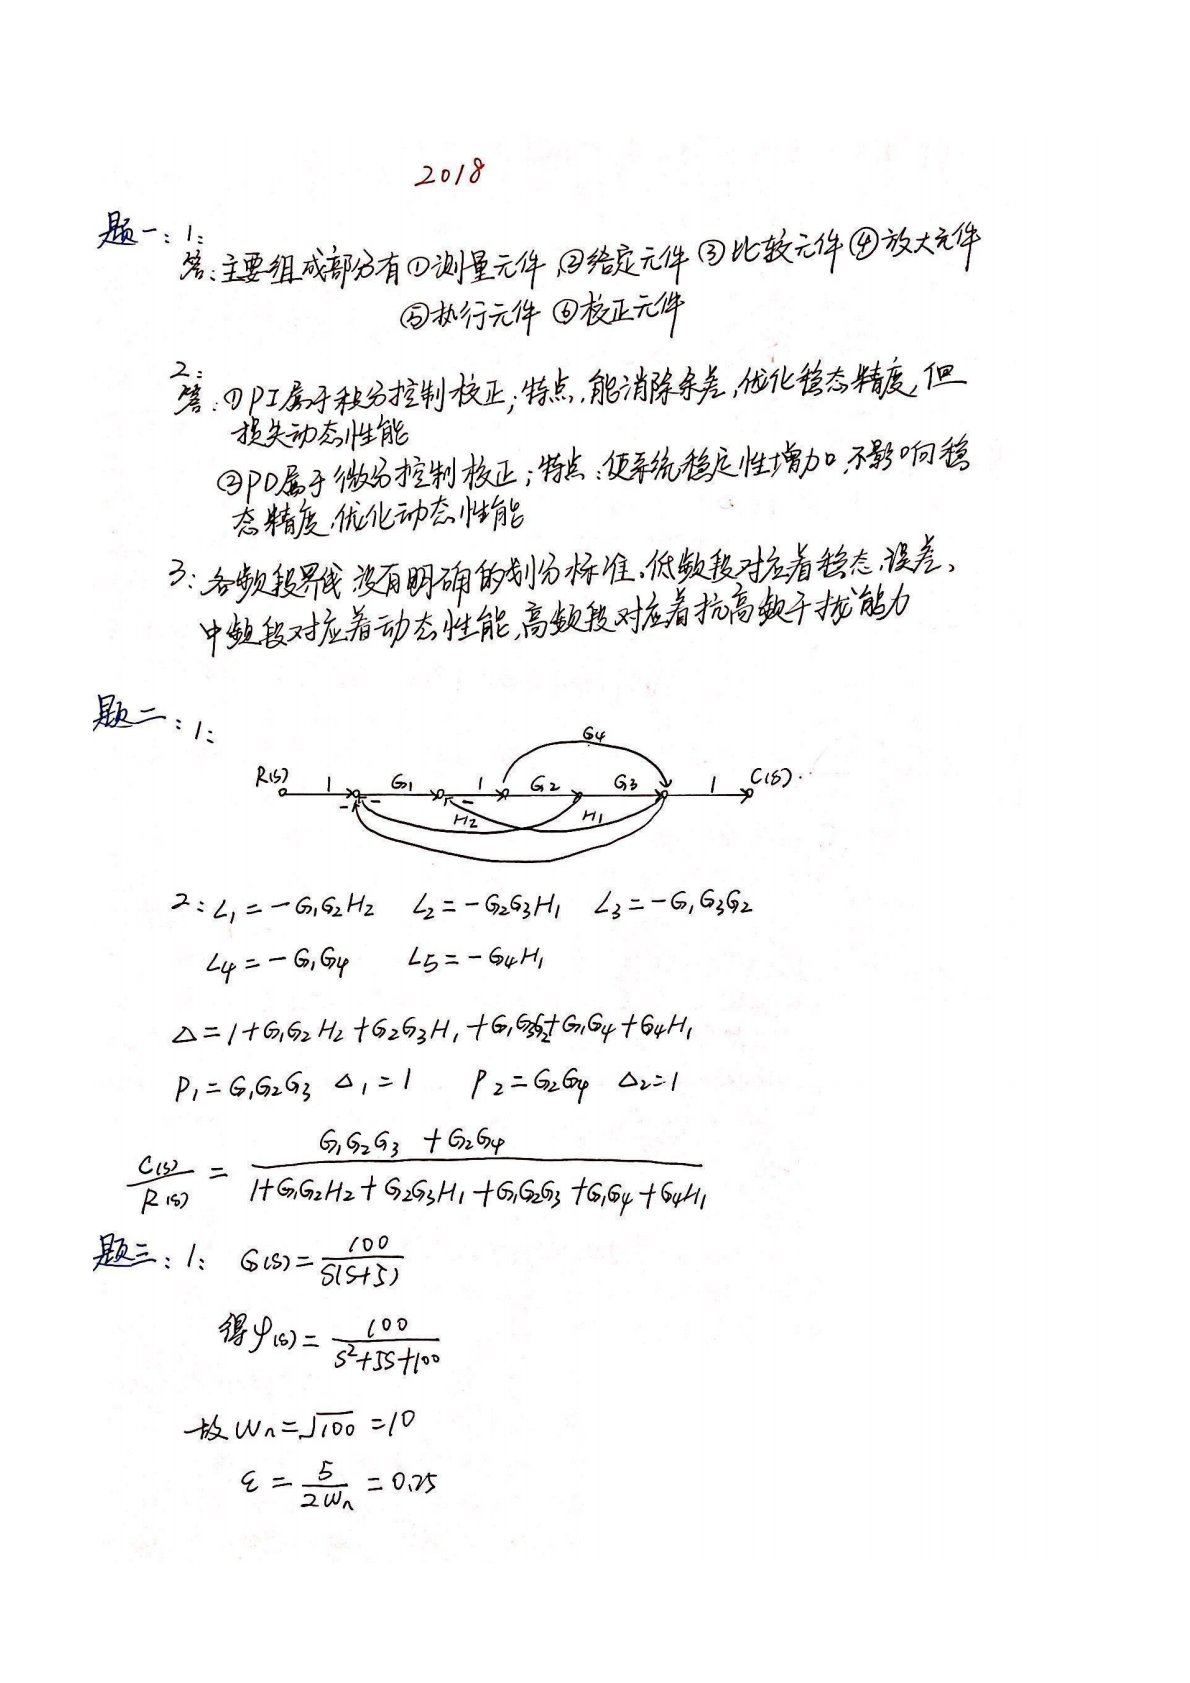 2018
题一:1:
答:主要组成部分有①测量元件 ②给定元件 ③比较元件 ④放大元件
⑤执行元件 ⑥校正元件
2:
答:①PI属于积分控制校正;特点,能消除余差,优化稳态精度,但
损失动态性能
②PD属于微分控制校正;特点:使系统稳定性增加,不影响向稳
态精度,优化动态性能
3:各频段界线没有明确的划分标准,低频段对应着稳态误差、
中频段对应着动态性能,高频段对应着抗高频干扰能力
题二:1:
G4
R(s) 1 G1 1 G2 G3 1 C(s)
- - - H2 H1
2:L1=-G1G2H2 L2=-G2G3H1 L3=-G1G3G2
L4=-G1G4 L5=-G4H1
Δ=1+G1G2H2+G2G3H1+G1G3G2+G1G4+G4H1
P1=G1G2G3 Δ1=1 P2=G2G4 Δ2=1
C(s)/R(s) = (G1G2G3+G2G4)/(1+G1G2H2+G2G3H1+G1G2G3+G1G4+G4H1)
题三:1: G(s)=100/(S(S+5))
得φ(s)=100/(S²+5S+100)
故Wn=√100=10
ξ=5/(2Wn)=0.25